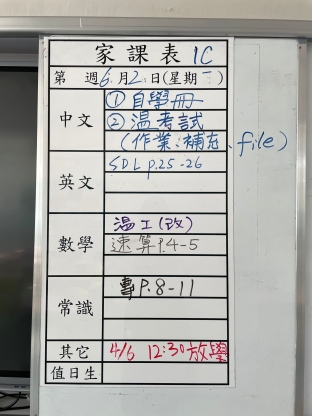 家課表 1C
第 週 6月2日(星期一)
中文
① 自學冊
② 溫考試
(作業、補充、file)
英文
SDL P.25-26
數學
溫工(改)
速算P.4-5
常識
專P.8-11
其它
4/6 12:30放學
值日生